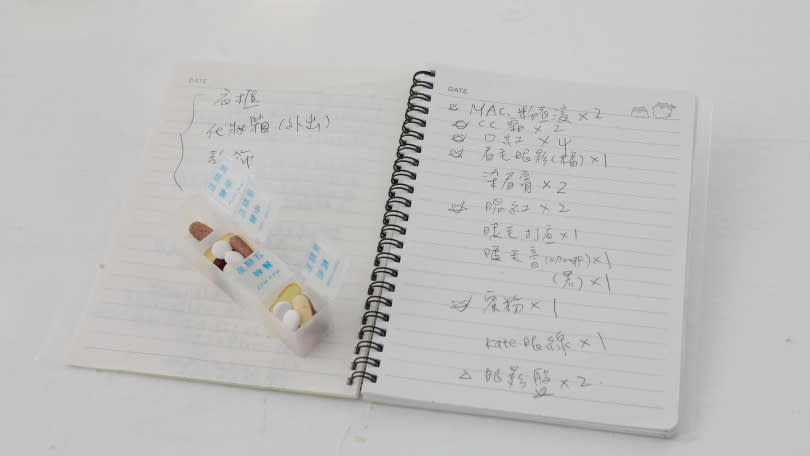 DATE
衣櫃
化妝箱(外出)
髮飾
星期五
晚餐
DATE
MAC 粉底液 x 2
CC霜 x 2
口紅 x 4
眉毛眼影(橘) x 1
染眉膏 x 2
腮紅 x 2
眼毛打底 x 1
睫毛膏 x 1
(黑) x 1
蜜粉 x 1
Kate 眼線 x 1
眼影盤 x 2